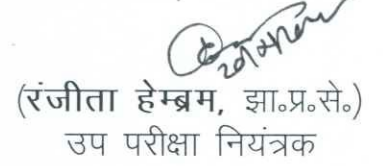 (रंजीता हेम्ब्रम, झा०प्र०से०)
उप परीक्षा नियंत्रक